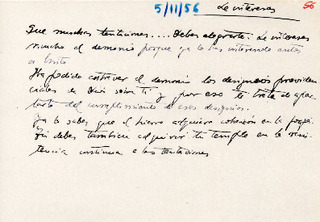 5/11/56
Le interesas
56
Que muchas tentaciones.... Debes alegrarte: Le interesas
mucho al demonio porque ya le has interesado antes
a Cristo.
Ha podido entrever el demonio los designios providen
ciales de Dios sobre ti y por eso te trata de apar
tarte del cumplimiento de esos designios.
Ya lo sabes que el hierro adquiere en la fragua
Tú debes también adquirir tu temple en la resis
tencia continua a las tentaciones